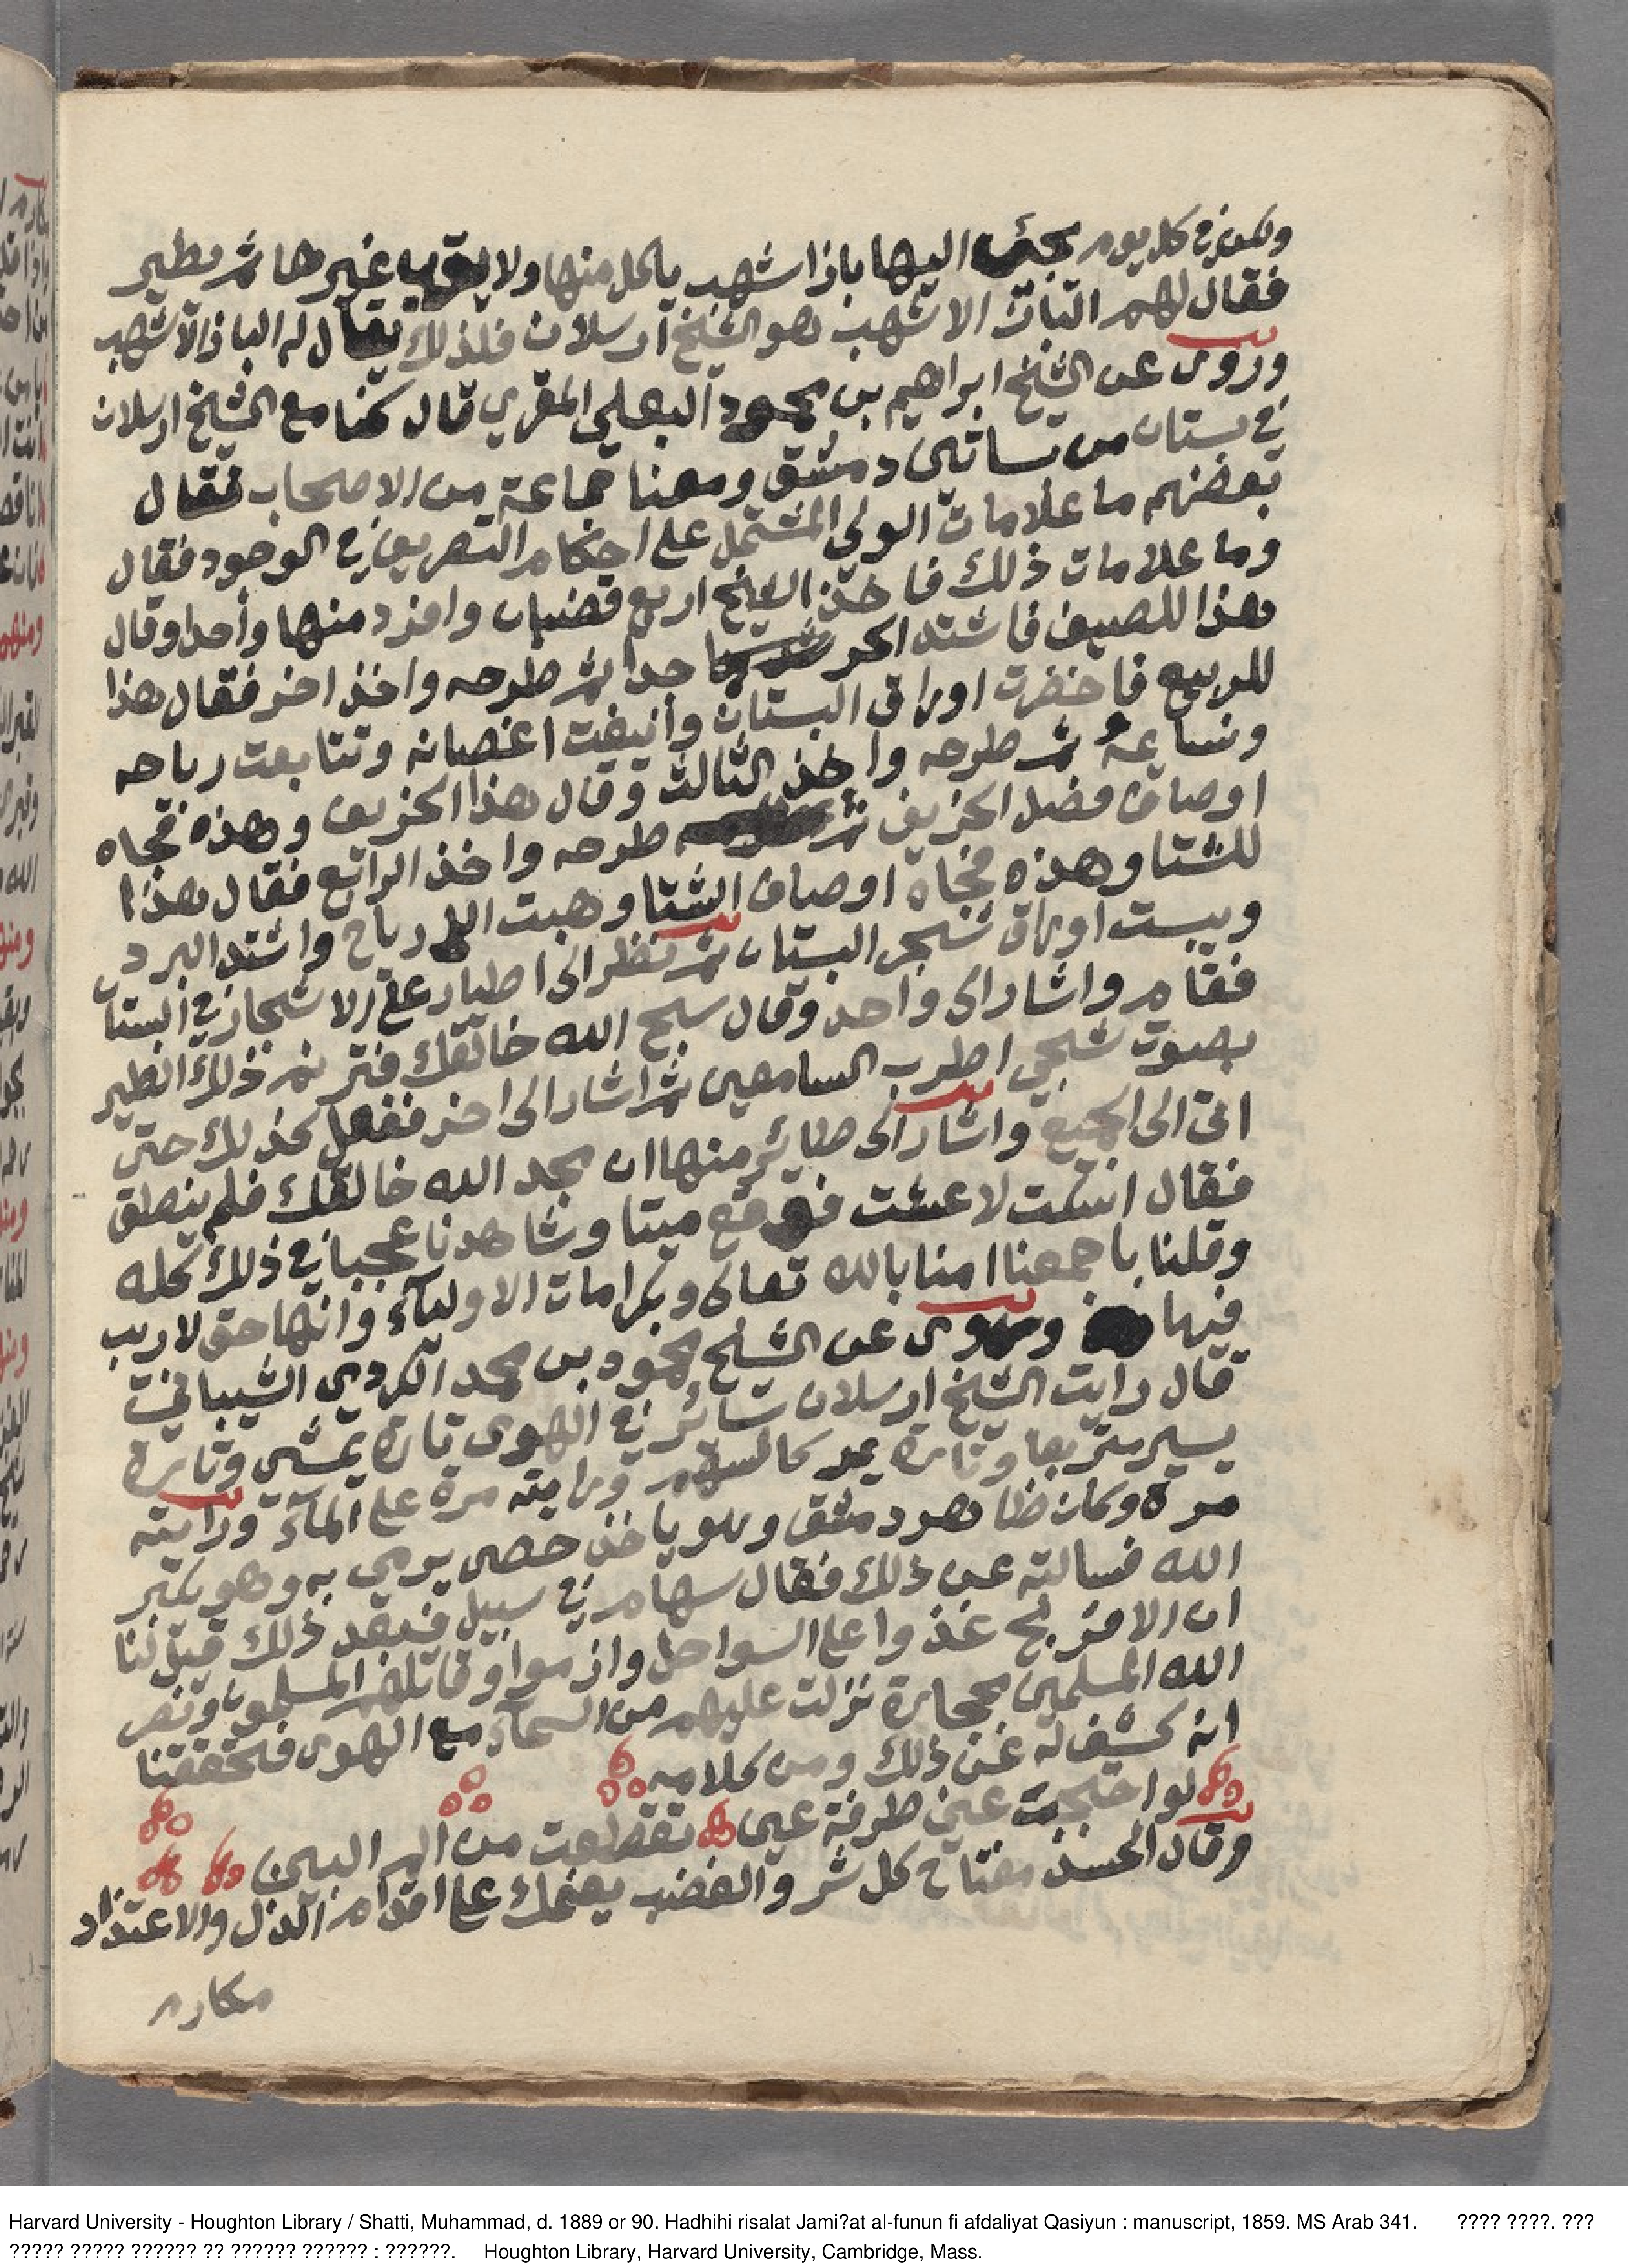 ولكن في كل يوم يجئ اليها باز اشهب ياكل منها ولا يقرب غيرها ثم يطير
فقال لهم الباز الاشهب هو الشيخ ارسلان فلذلك يقال له الباز الاشهب
وروى عن الشيخ ابراهيم بن محمود البعلي المقري قال كنا مع الشيخ ارسلان
في بستان من بساتين دمشق ومعنا جماعة من الاصحاب فقال
بعضهم ما علامات الولى المشتمل على احكام التصريف في الوجود فقال
وما علامات ذلك فاخذ الشيخ اربع قضبان وافرد منها واحدا وقال
هذا للصيف فاشتد الحر جدا ثم طرحه واخذ اخر فقال هذا
للربيع فاخضرت اوراق البستان وانيفت اغصانه وتتابعت رياحه
ثم طرحه واخذ الثالث وقال هذا الخريف وهذه فجاه
اوصاف فصل الخريف ثم طرحه واخذ الرابع فقال هذا
للشتا وهذه فجاه اوصاف الشتا وهبت الرياح واشتد البرد
ويبست اوراق شجر البستان ثم نظر الى اطيار على الاشجار في البستان
فقام واشار الى واحد وقال سبح الله خالقك فترنم ذلك الطير
بصوت شجي اطرب السامعين ثم اشار الى اخر ففعل كذلك حتى
اتى الى الجميع واشار الى طائر منها ان مجد الله خالقك فلم ينطق
فقال اسكت لا عشت فوقع ميتا وشاهدنا عجبا في ذلك كله
وقلنا باجمعنا امنا بالله تعالى وبكرامات الاوليآء وانها حق لا ريب
فيها وروى عن الشيخ محمود بن محمد الكردي الشيباني
قال رايت الشيخ ارسلان سائر في الهوى تارة يمشي وتارة
يسير متربعا وتارة يمر كالسهم ورايته مرة على المآء ورايته
مرة وكان ظاهر دمشق وهو ياخذ حصى يرمي به وهو يكبر
الله فسالته عن ذلك فقال سهام في سبيل فبعد ذلك قيل لنا
ان الافرنج غذوا على السواحل وقاتلهم المسلمون ونصر
الله المسلمين بحجارة نزلت عليهم من السمآء مع الهوى فتحققنا
انه كشف له عن ذلك ومن كلامه
لو اختلجت عيني طرفة عين تقطعت من الم البين
وقال الحسد مفتاح كل شر والغضب يقيمك على اقدام الذل والاعتذار
مكارم